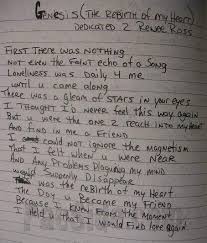 Genesis (The Rebirth of my Heart)
Dedicated 2 Renee Ross
First There was nothing
Not even the faint echo of a Song
Loneliness was Daily 4 me
until u came along
There was a gleam of STARS in your eyes
I thought I'D never feel this way again
But u were the one 2 reach into my Heart
And find in me a Friend
I could not ignore the magnetism
That I felt when u were Near
And Any Problems Plaguing my mind
would Suddenly Disappear
was the rebirth of my Heart
The Day u Became my Friend
Because I knew From the moment
I Held u that I would find love again